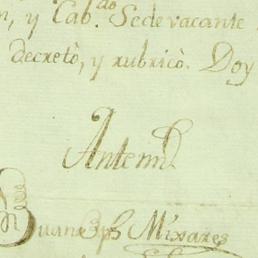 n, y Cab.do Sedevacante
decretò, y rubricò. Doy
Antemi
Juan Jph Mixares